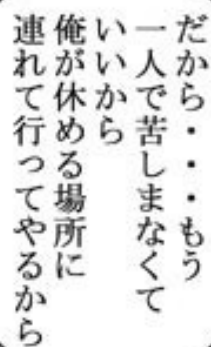 だから・・・もう
一人で苦しまなくて
いいから
俺が休める場所に
連れて行ってやるから